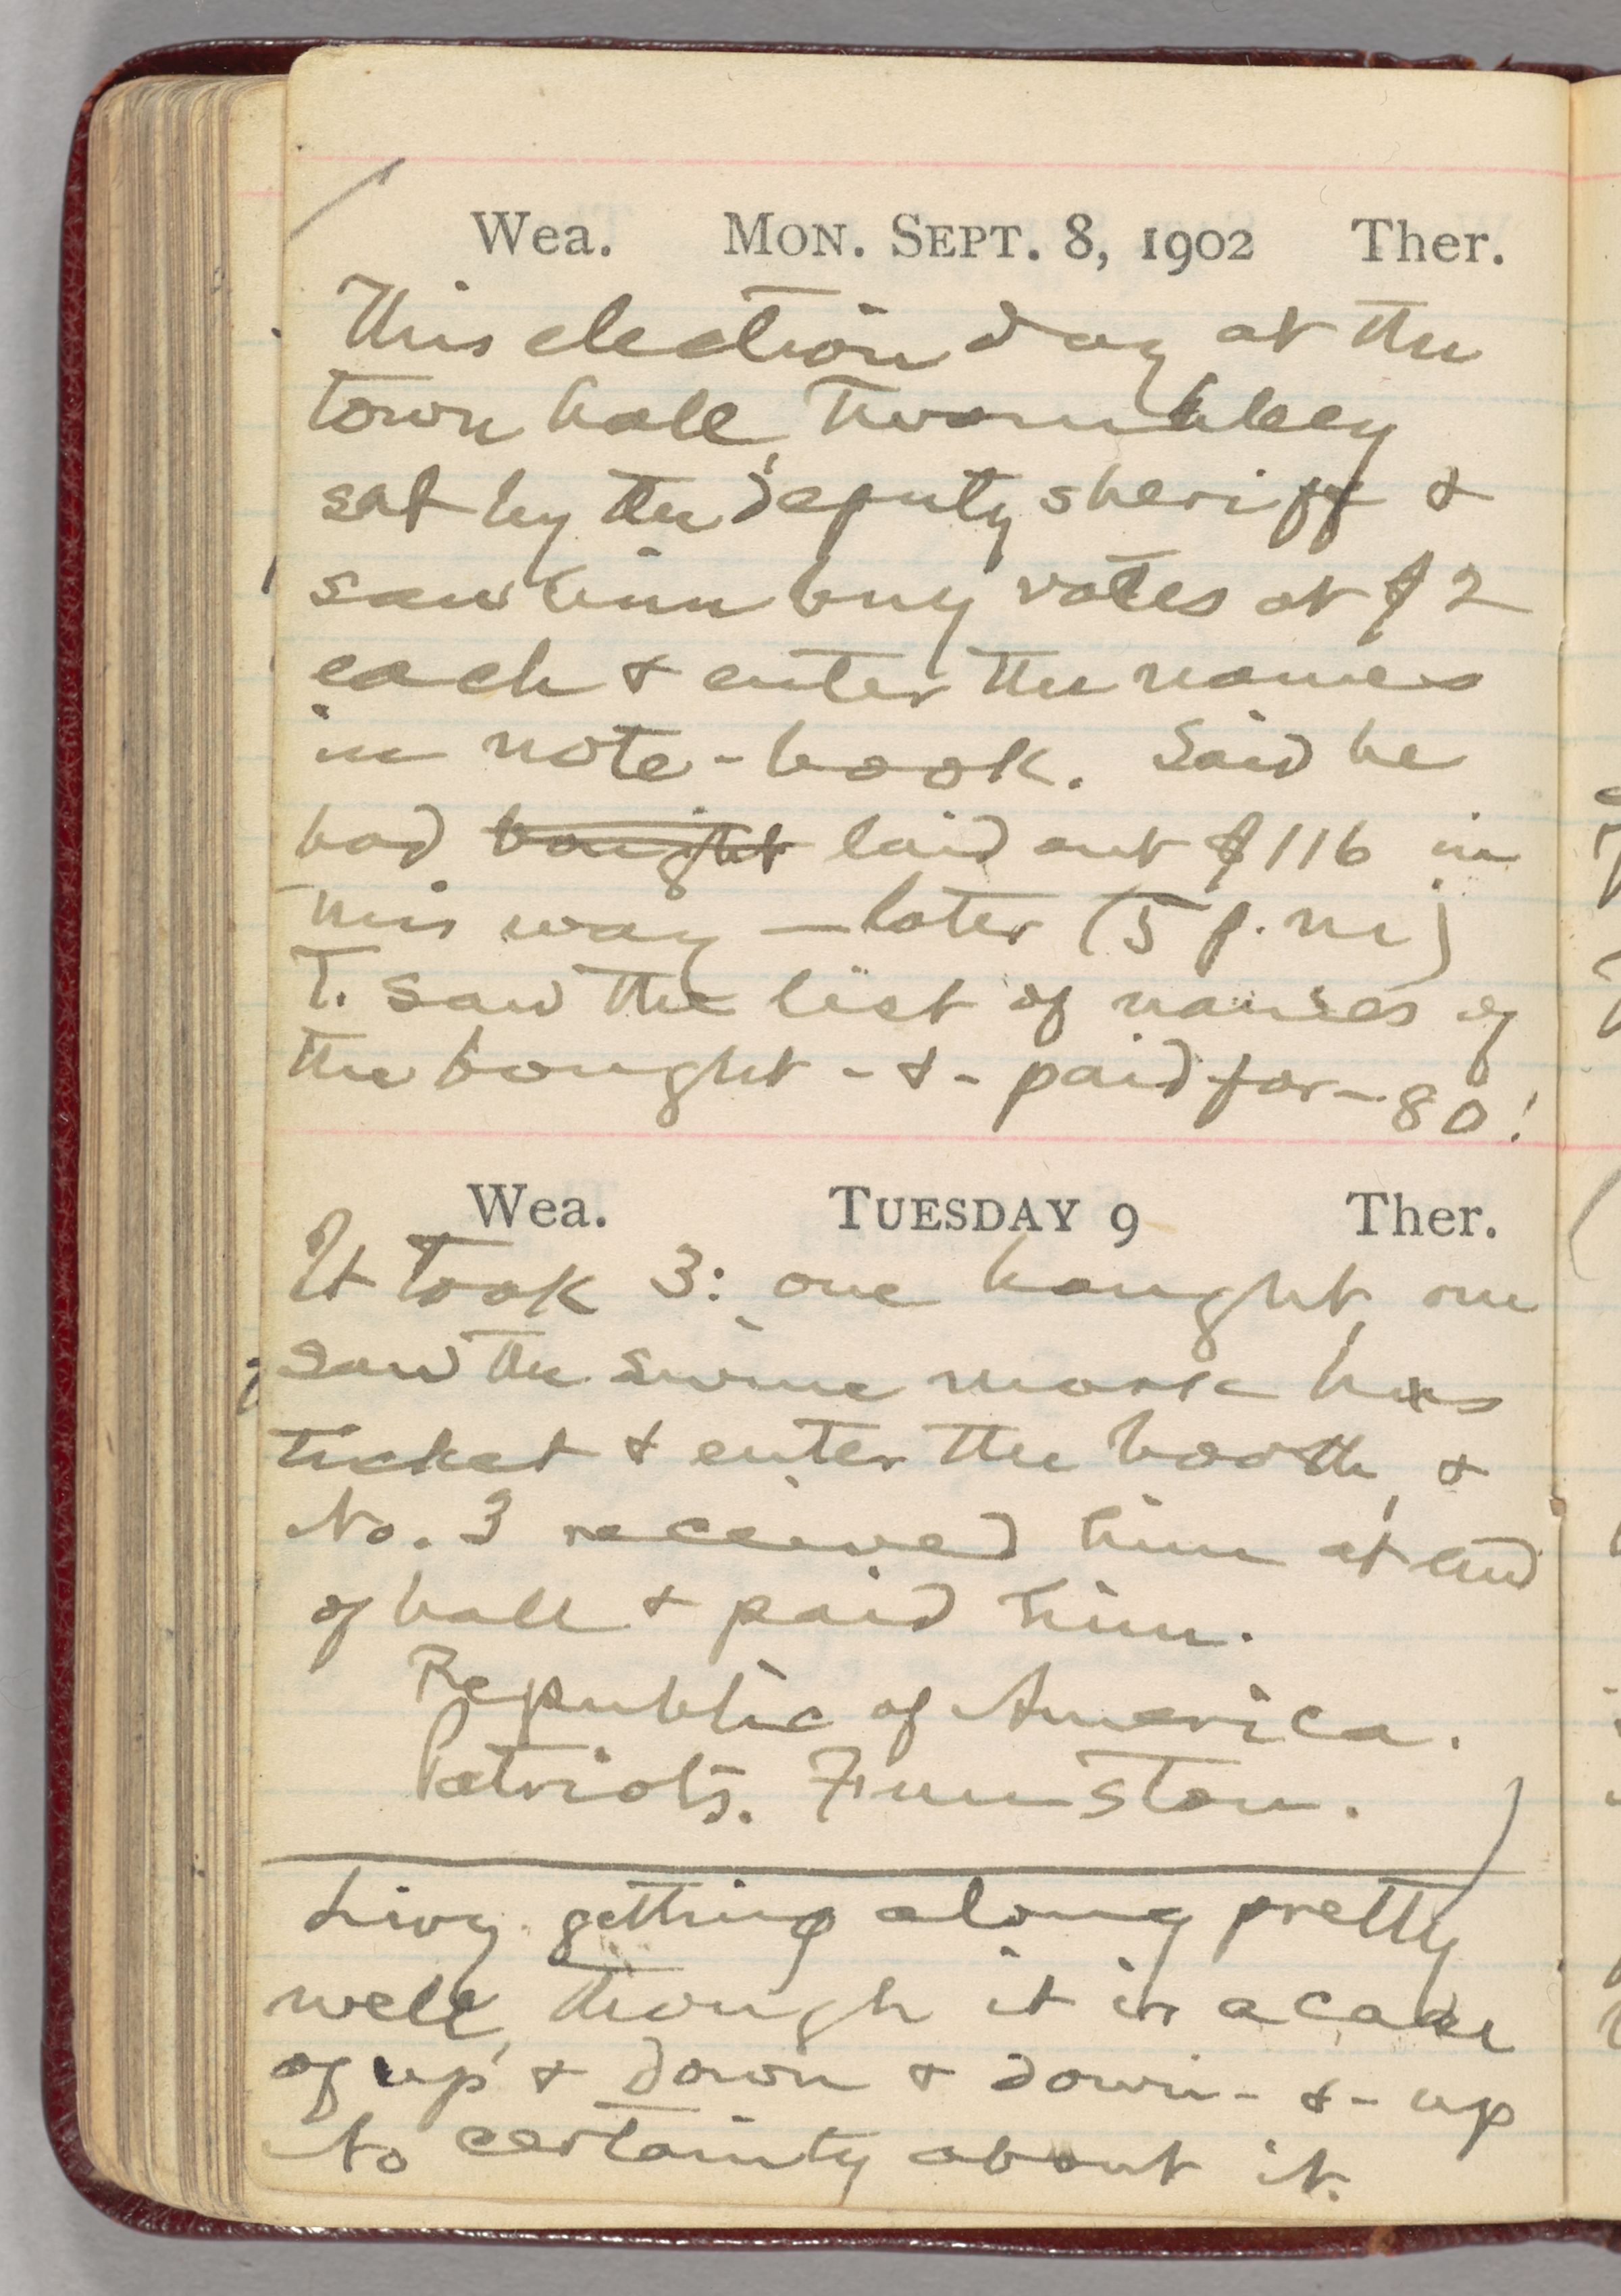 Wea. MON. SEPT. 8, 1902 Ther.
This election day at the
town hall, Twombley
sat by the deputy sheriff &
saw him buy votes at $2
each & enter the names
in note-book. Said he
had bought laid out $116 in
this way—later (5 p.m)
T. saw the list of names of
the bought-&-paid-for—80!
Wea. TUESDAY 9 Ther.
It took 3: one bought, one
saw the swine mark his
ticket & enter the booth, &
No. 3 received him at end
of hall & paid him.
Republic of America.
Patriots. Funston.
Livy getting along pretty
well, though it is a case
of up & down & down-&-up
No certainty about it.